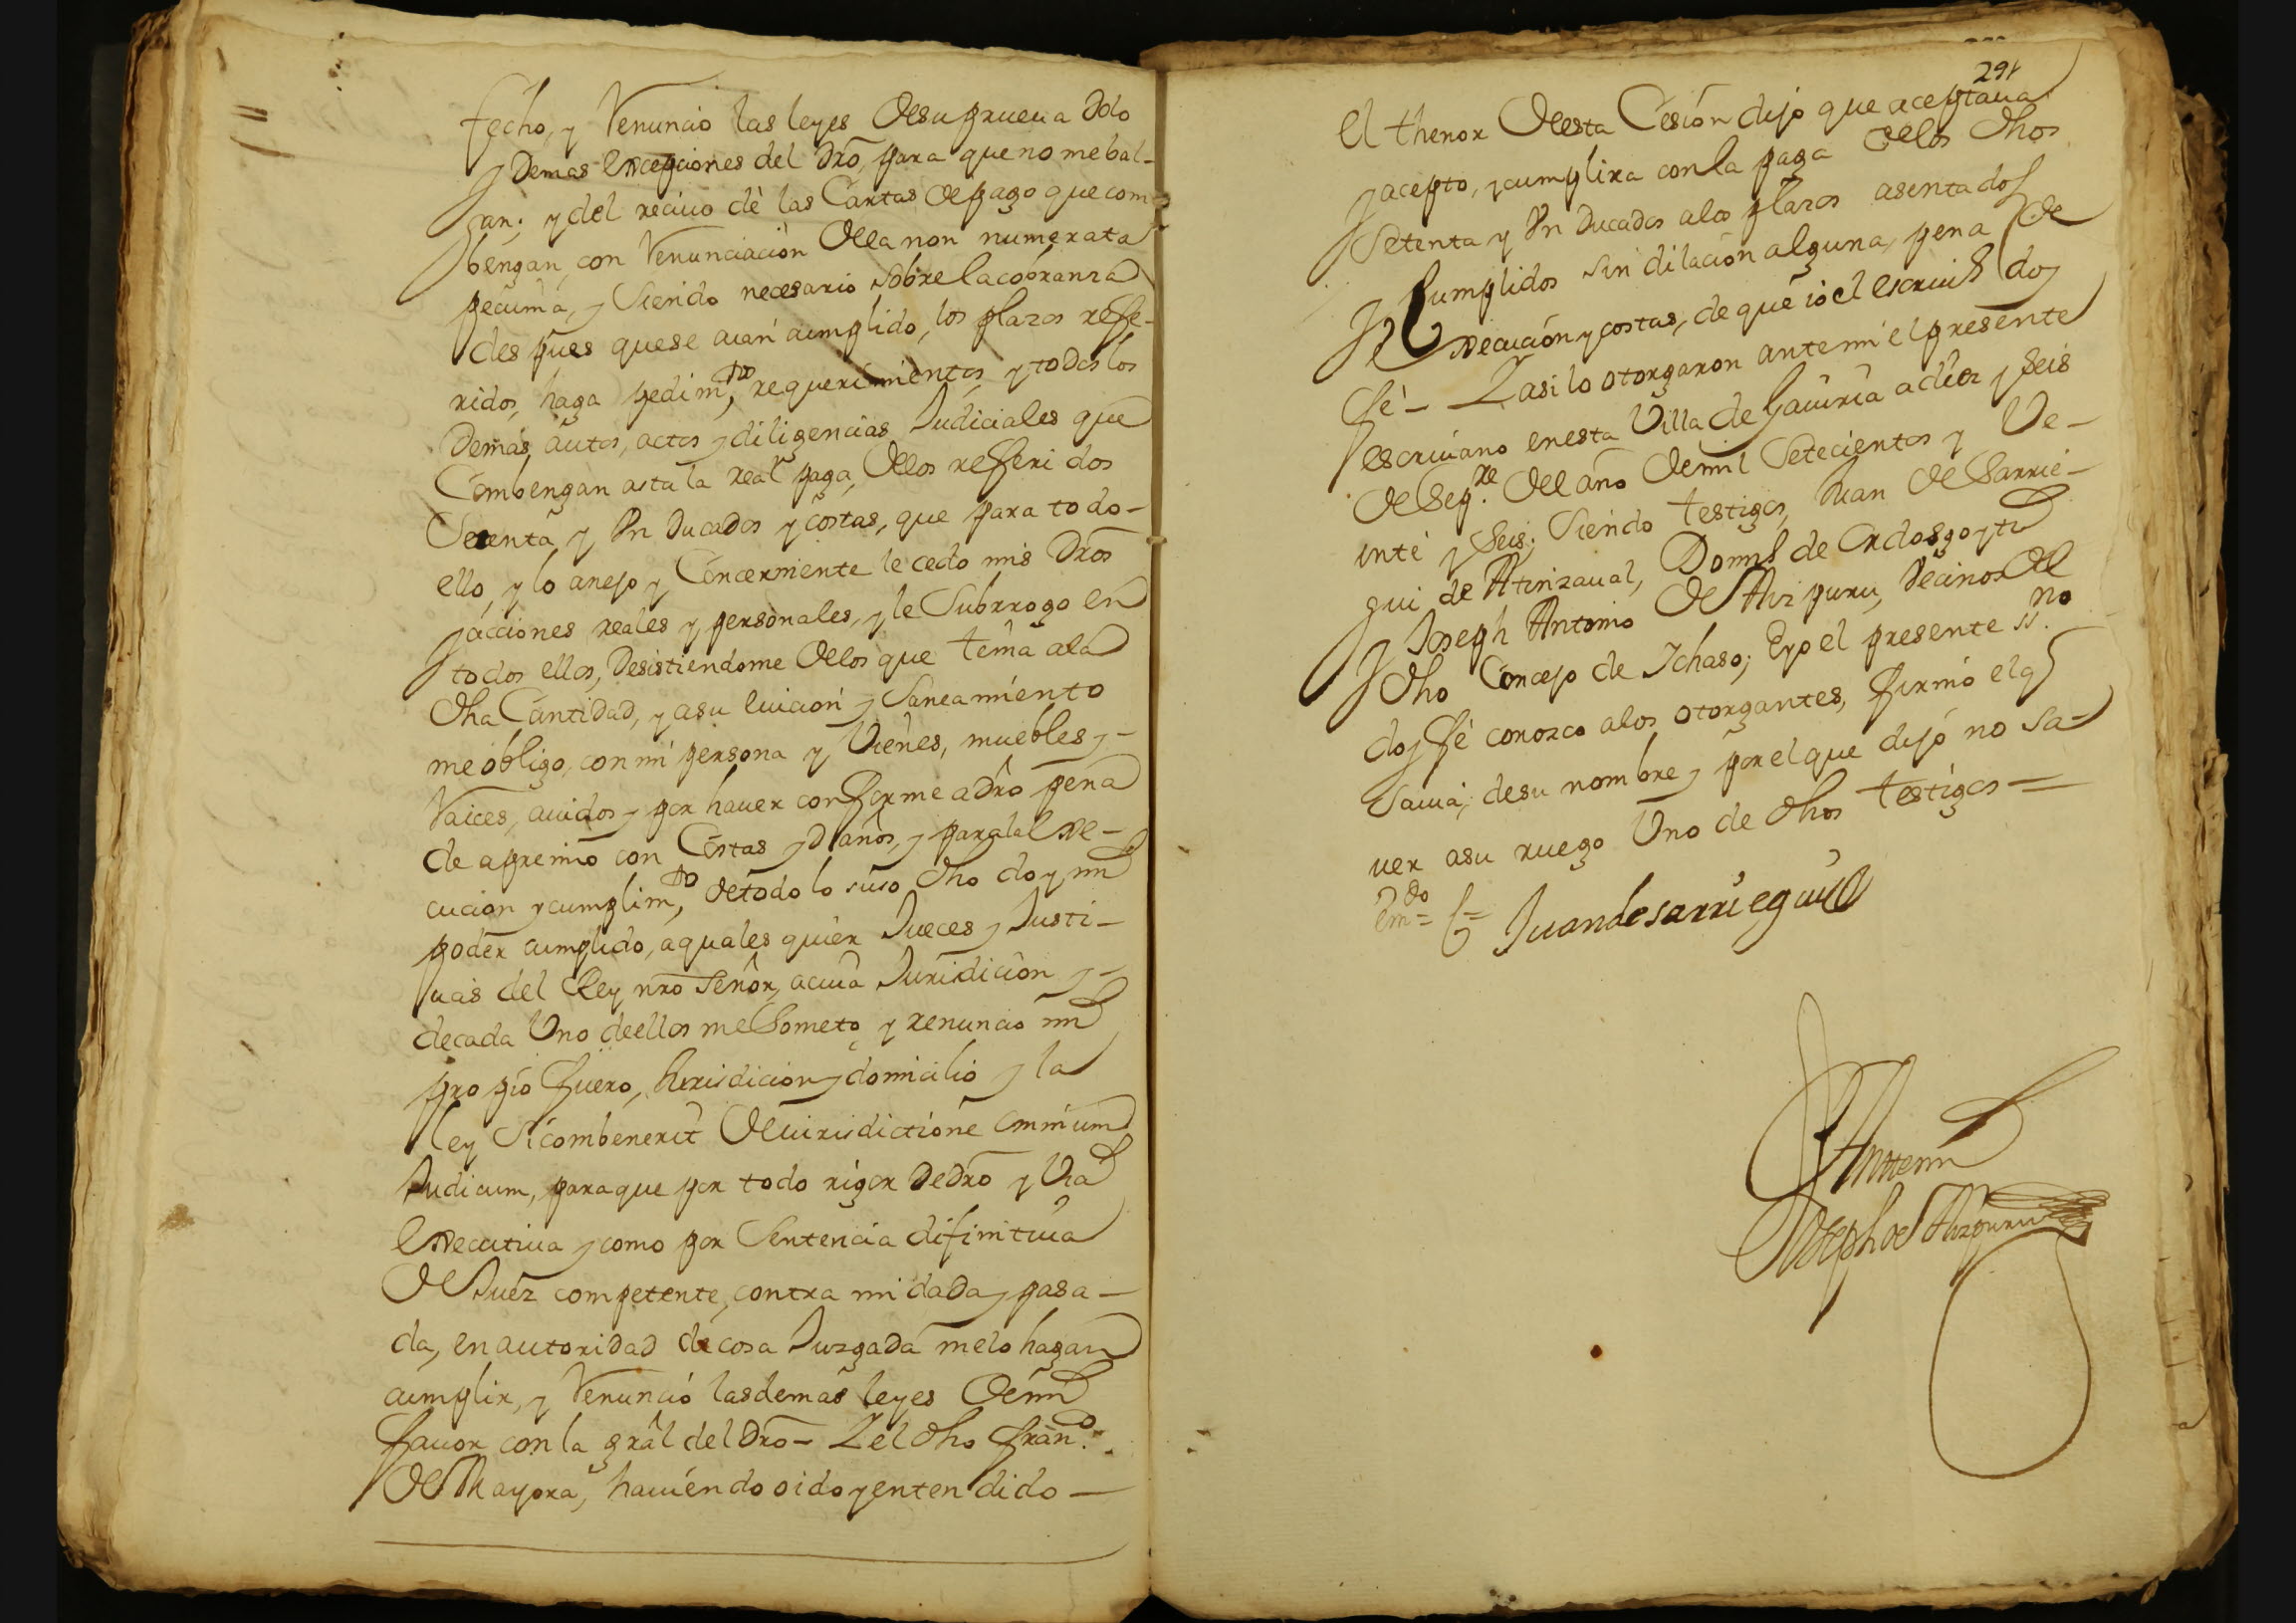 fecho, y Renuncio las leyes de su prueua dolo
y Demas excepciones del dro, para que no me bal-
gan; y del reciuo dè las Cartas de pago que com
bengan, con Renunciacion de la non numerata
pecunia, y Siendo necesario sobre la cobranza
despues que se aian cumplido, los plazos refe-
ridos, haga pedim.to, requerimientos, y todos los
Demas, autos, actos y diligencias Judiciales que
Combengan asta la real paga, de los referidos
Setenta y Un Ducados y costas, que para todo-
ello, y lo anejo y Concerniente le cedo mis dros
y acciones reales y personales, y le Subrrogo en
todos ellos, Desistiendome de los que tenia a la
dha Cantidad, y a su euicion y Saneamiento
me obligo, con mi persona y Uienes, muebles y-
Raices, auidos y por hauer conforme a dro pena
de apremio con Costas y Daños, y para la exe-
cucion y cumplim.to, de todo lo suso dho doy mi
poder cumplido, a quales quier Jueces y Justi-
cias del Rey nro Señor, a cuia Juridicion y-
de cada Uno de ellos me Someto, y renuncio mi
propio fuero, Jurisdicion y domicilio y la
ley Sicombenerit de iurisdictione omnium
Judicum, para que por todo rigor de dro y Uia
executiua y como por Sentencia difinitiua
de Juez competente, contra mi dada y pasa-
da, en autoridad de cosa Juzgada me lo hagan
cumplir, y Renuncio las demas leyes de mi
fauor con la gràl del dro- Y el dho fran.co
de Mayora, hauiendo oido y entendido-
291
el thenor de esta Cesion dijo que aceptaua
y acepto, y cumplira con la paga de los dhos
Setenta y Un Ducados a los plazos asentados
y Cumplidos sin dilacion alguna, pena de
execucion y costas, de que io el escriu.o doy
fè- Y asi lo otorgaron ante mi el presente
escriuano en esta Uilla de Gauiria a diez y seis
de Sep.re del año de mil Setecientos y Ve-
inte y Seis; Siendo testigos, Juan de Sarrie-
gui de Atinzaual, Dom.o de Ordosgoyti
y Joseph Antonio de Aizpuru, Uecinos del
dho Concejo de Ichaso; E yo el presente ss.no
doy fè conozco a los otorgantes, firmó el q
sauia, de su nombre, y por el que dijó no sa-
uer a su ruego Uno de dhos testigos =
Juan de sarriegui
Ante mi
Joseph de Aizpuru